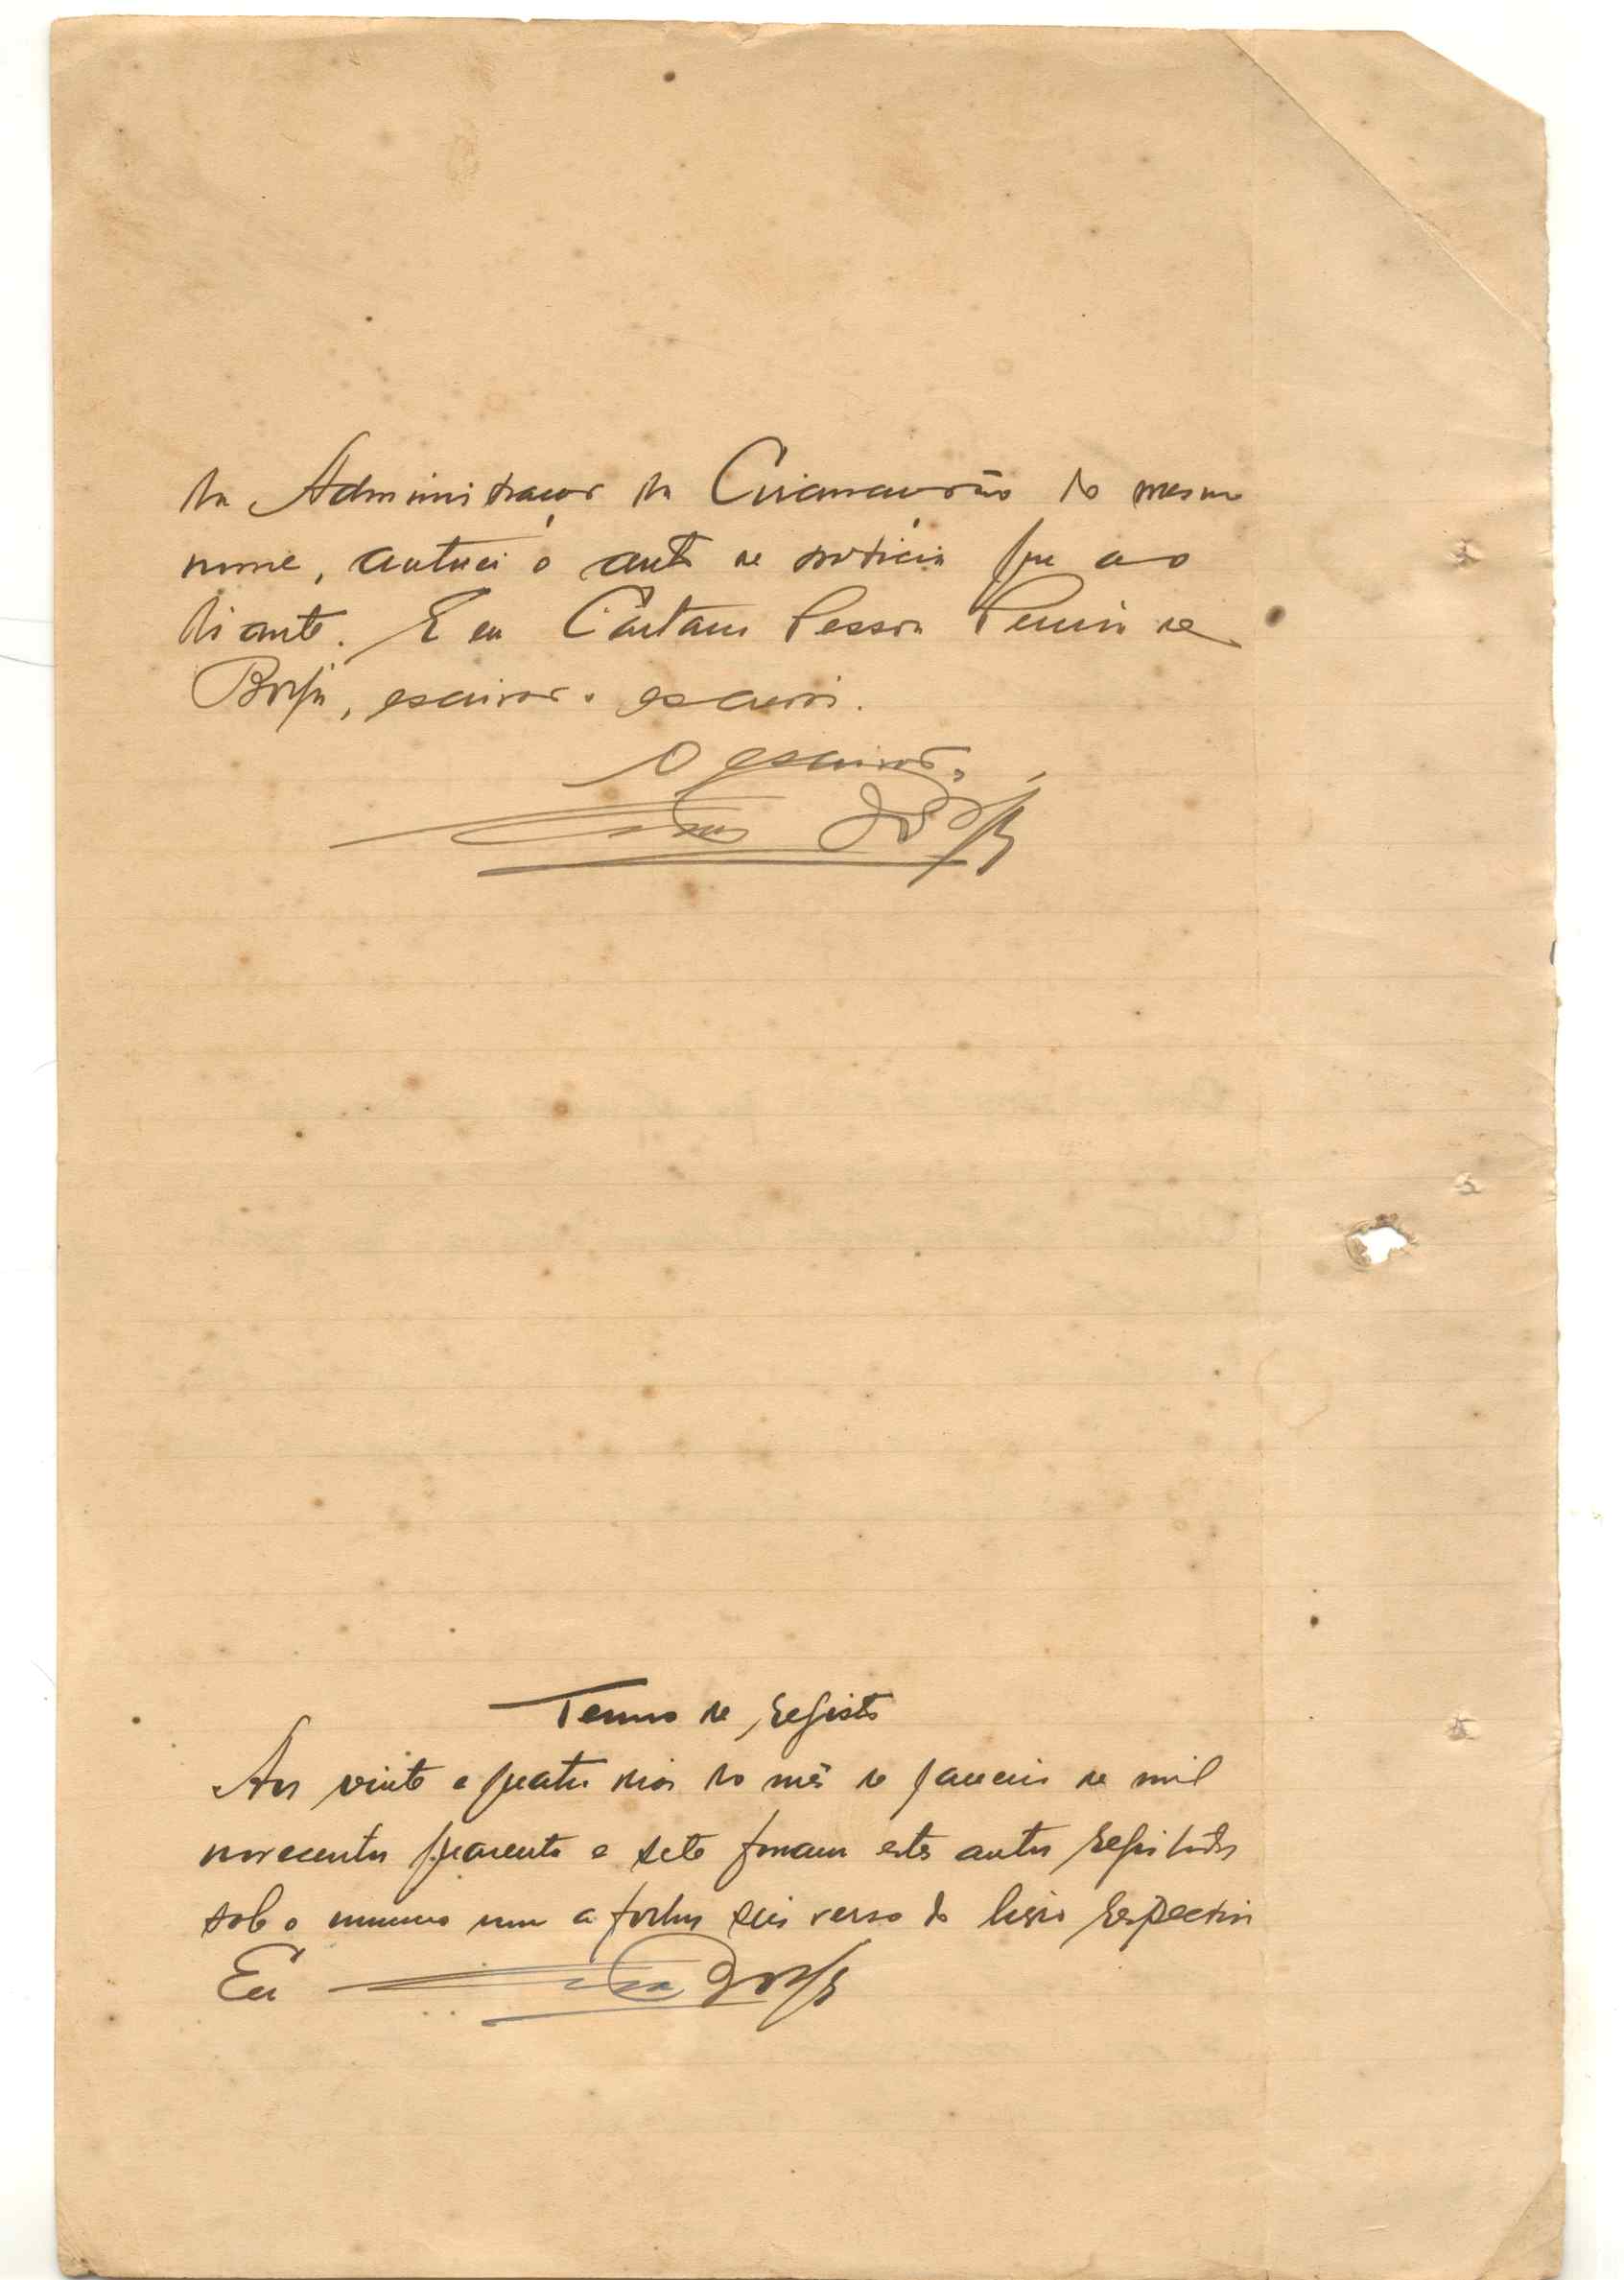 da Administração da Circunscrição do mesmo
nome, autuei o auto de notícia que ao
diante. E eu Caetano Pessoa Pereira de
Borja, escrivão o escrevi.
O escrivão,
Termo de registo
Aos vinte e quatro dias do mês de janeiro de mil
novecentos quarenta e sete foram estes autos registados
sob o numero um a folhas seis verso do livro respectivo
Eu